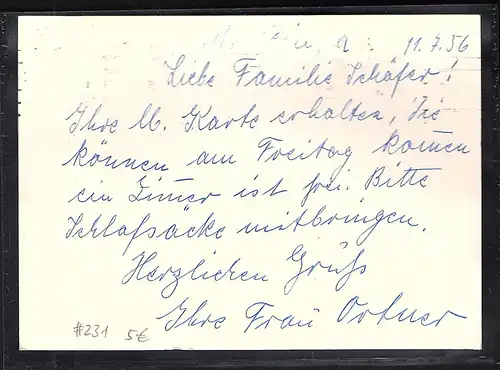 11.7.56
Liebe Familie Schäfer!
Ihre lb. Karte erhalten, Sie
können am Freitag kom̄en
ein Zim̄er ist frei. Bitte
Schlafsäcke mitbringen.
Herzlichen Gruß
Ihre Frau Ortner
#231 5€